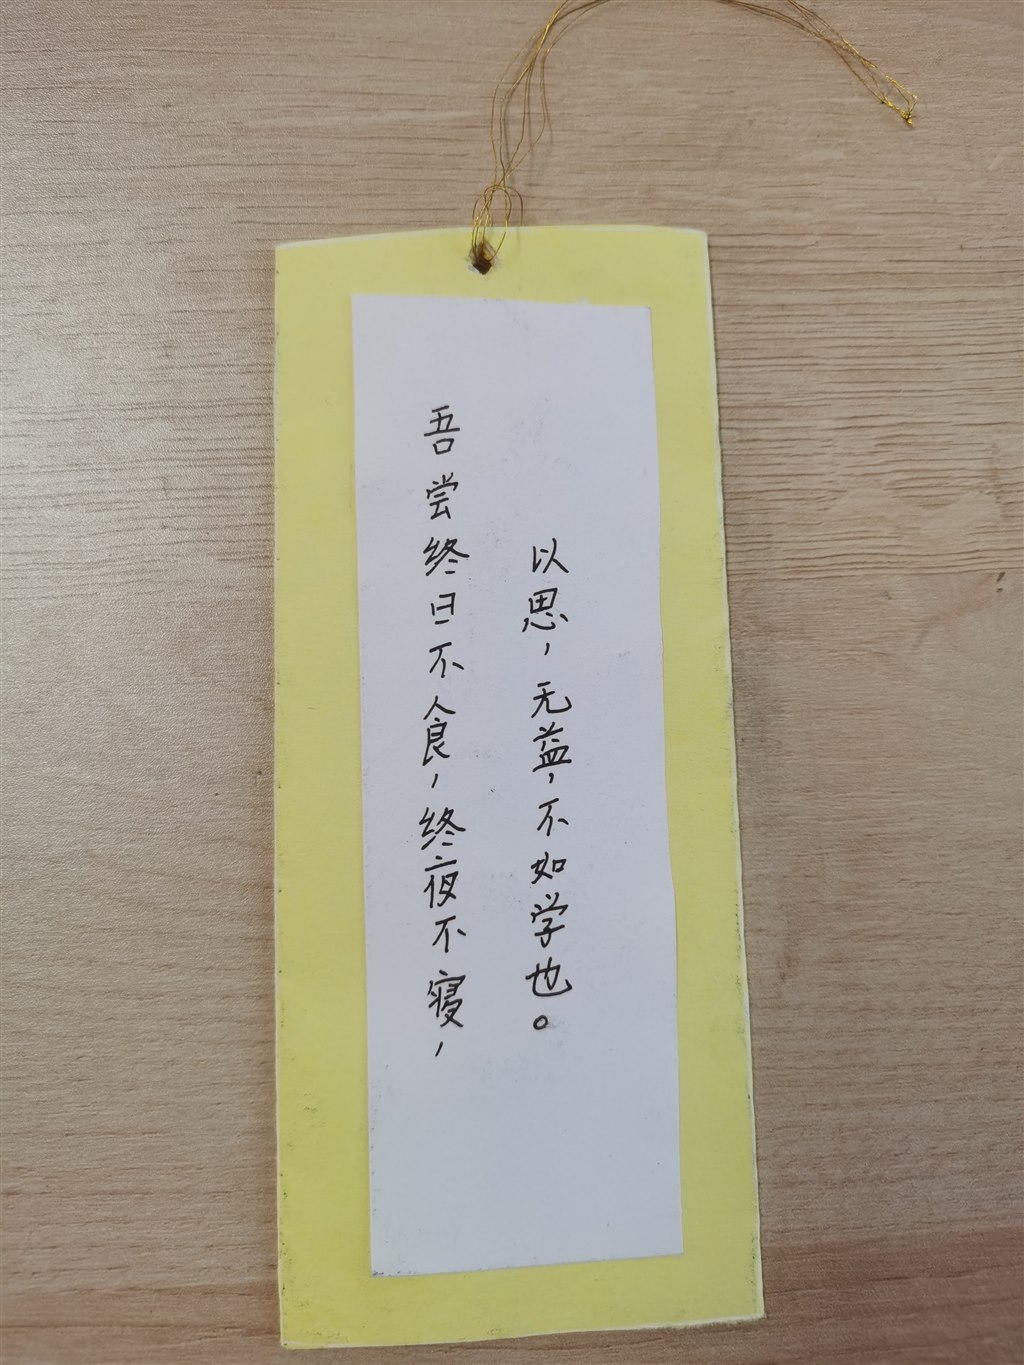 吾尝终日不食，终夜不寝，
以思，无益，不如学也。